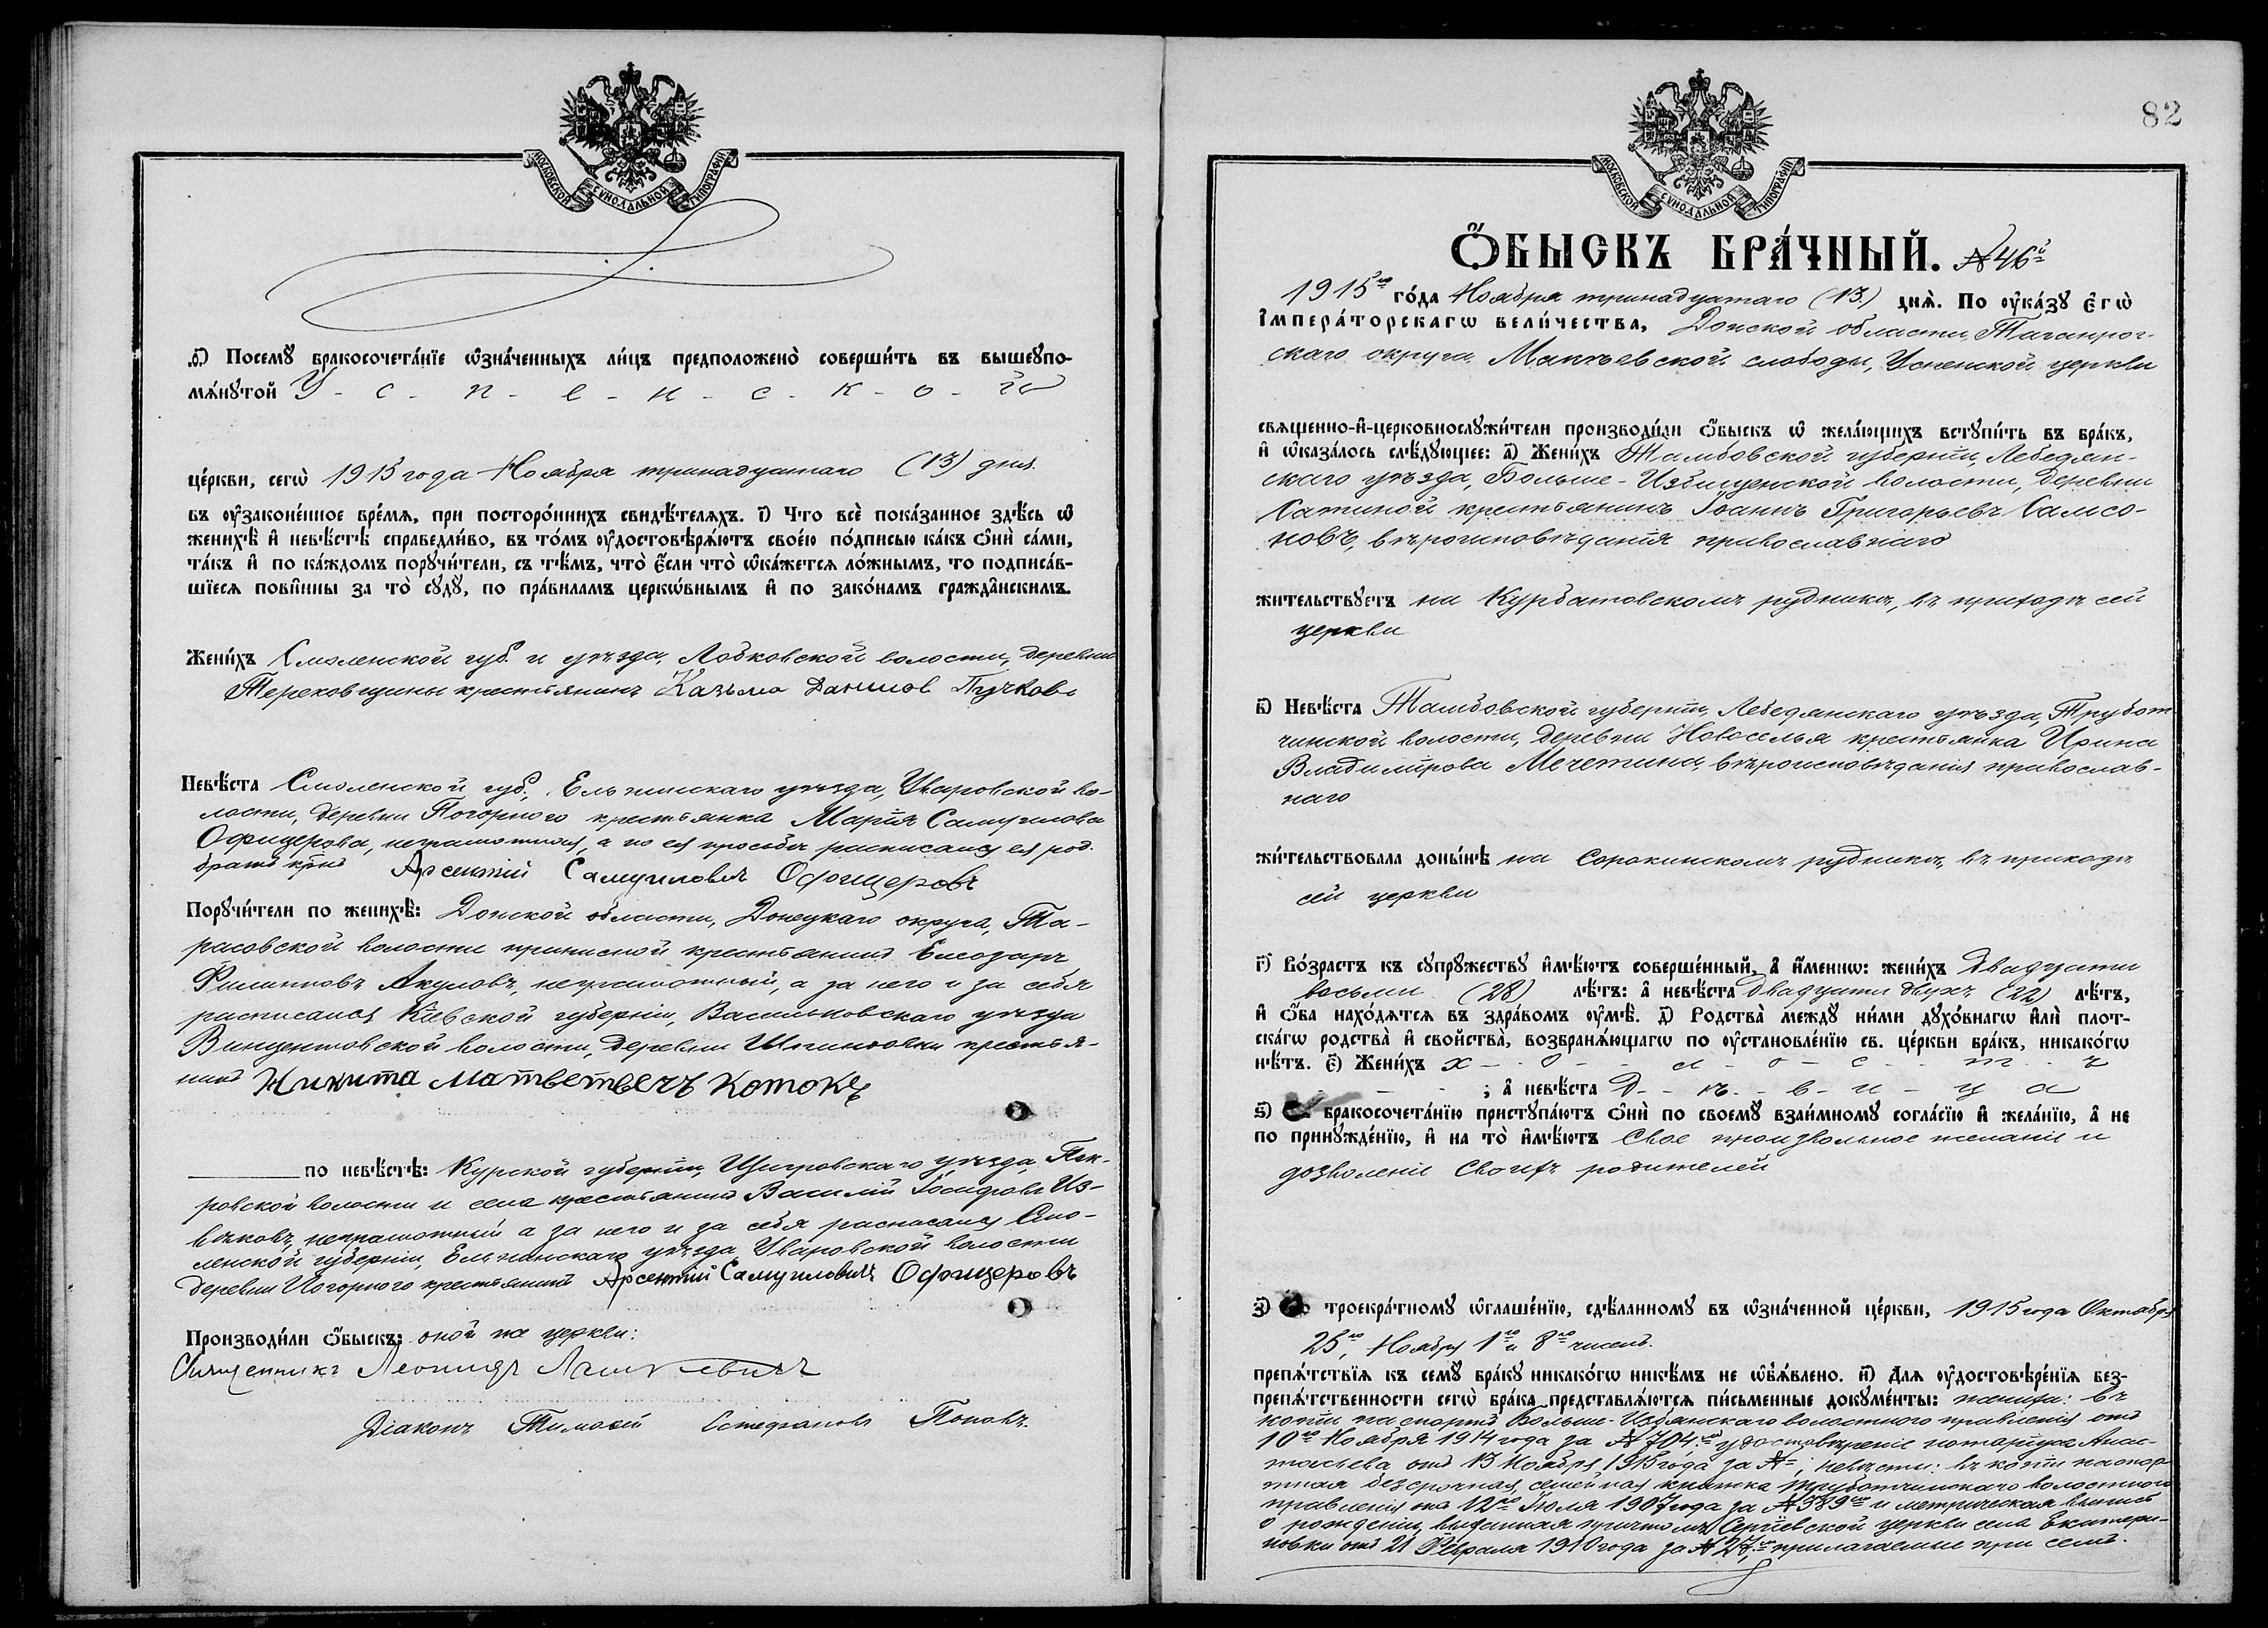 МОСКОВСКОЙ СѴНОДАЛЬНОЙ ТИПОГРАФІИ
ѳ҃) Посемꙋ бракосочета́нїе ѡ҆зна́ченныхъ ли́цъ предположено̀ соверши́ть въ вышеꙋпо-
мѧ́нꙋтой У - с - п - е - н - с - к - о - й
це́ркви, сегѡ̀ 1915 года Ноября тринадцатаго (13) дня.
въ ᲂу҆законе́нное вре́мѧ, при посторо́ннихъ свидѣ́телѧхъ. і҃) Что всѐ пока́занное здѣ́сь ѡ҆
женихѣ̀ и҆ невѣ́стѣ справедли́во, въ то́мъ ᲂу҆достовѣрѧ́ютъ свое́ю по́дписью ка́къ ѻ҆нѝ са́ми,
та́къ и҆ по ка́ждомъ порꙋчи́тели, съ тѣ́мъ, что̀ є҆́сли что̀ ѡ҆ка́жетсѧ ло́жнымъ, то подписа́в-
шїесѧ пови́нны за то̀ сꙋдꙋ̀, по пра́виламъ церко́внымъ и҆ по зако́намъ гражда́нскимъ.
Жени́хъ Смоленской губ. и уѣзда, Лобковской волости, деревни
Терековщины крестьянинъ Казьма Данилов Пучковъ
Невѣ́ста Смоленской губ., Ельнинскаго уѣзда, Уваровской во-
лости, деревни Погорного крестьянка Марія Самуилова
Офицерова, неграмотная, а по ея просьбѣ расписался ея род.
братъ крнъ Арсентій Самуиловичъ Офицеровъ
Порꙋчи́тели по женихѣ̀: Донской области, Донецкаго округа, Та-
расовской волости приписной крестьянинъ
Филипповъ Акуловъ, неграмотный, а за него и за себя
расписался Кіевской губерніи, Васильковскаго уѣзда
Винцентовской волости, деревни крестья-
нинъ Никита Матветвечъ Котокъ
по невѣ́стѣ: Курской губерніи, Щигровскаго уѣзда, Пок-
ровской волости и села крестьянинъ Василій Из-
вѣковъ, неграмотный а за него и за себя расписался Смо-
ленской губерніи, Ельнинскаго уѣзда, Уваровской волости
деревни Погорного крестьянинъ Арсентій Самуиловичъ Офицеровъ
Производи́ли ѻ҆́быскъ: оной же церкви:
Священникъ Леонидъ
Діаконъ Тимоѳей Стефановъ Поповъ.
82
МОСКОВСКОЙ СѴНОДАЛЬНОЙ ТИПОГРАФІИ
Ѻ҆́БЫСКЪ БРА́ЧНЫЙ. № 46й
1915го го́да Ноября тринадцатаго (13) днѧ̀. По ᲂу҆ка́зꙋ Є҆гѡ̀
І҆мпера́торскагѡ вели́чества, Донской области, Таганрог-
скаго округа, Макѣевской слободы, Успенской церкви
свѧщенно-и҆-церковнослꙋжи́тели производи́ли ѻ҆́быскъ ѡ҆ жела́ющихъ встꙋпи́ть въ бра́къ,
и҆ ѡ҆каза́лось слѣ́дꙋющее: а҃) Жени́хъ Тамбовской губерніи, Лебедян-
скаго уѣзда, Больше-Избищенской волости, деревни
Сатиной крестьянинъ Іоаннъ Григорьевъ Самсо-
новъ, вѣроисповѣданія православнаго
жительствꙋетъ на Курбатовскомъ рудникѣ, въ приходѣ сей
церкви
в҃) Невѣ́ста Тамбовской губерніи, Лебедянскаго уѣзда, Трубет-
чинской волости, деревни Новоселья крестьянка Ирина
Владимірова Мечетина, вѣроисповѣданія православ-
наго
жи́тельствовала доны́нѣ на Сорокинскомъ рудникѣ, въ приходѣ
сей церкви
г҃) Во́зрастъ къ сꙋпрꙋжествꙋ и҆мѣ́ютъ соверше́нный, а҆ и҆́менно: жени́хъ двадцати
восьми (28) лѣ́тъ: а҆ невѣ́ста двадцати двухъ (22) лѣ́тъ,
и҆ ѻ҆́ба нахо́дѧтсѧ въ здра́вомъ ᲂу҆мѣ̀. д҃) Родства̀ междꙋ ни́ми дꙋхо́внагѡ и҆лѝ плот-
ска́гѡ родства̀ и҆ свойства̀, возбранѧ́ющагѡ по ᲂу҆становле́нїю св. це́ркви бра́къ, никако́гѡ
нѣ́тъ. є҃) Жени́хъ х - о - л - о - с - т - ъ
; а҆ невѣ́ста д - ѣ - в - и - ц - а
ѕ҃) бракосочета́нїю пристꙋпа́ютъ ѻ҆нѝ по своемꙋ̀ взаи́мномꙋ согла́сїю и҆ жела́нїю, а҆ не
по принꙋжде́нїю, и҆ на то̀ и҆мѣ́ютъ свое произвольное желаніе и
дозволеніе своихъ родителей
з҃) троекра́тномꙋ ѡ҆глаше́нїю, сдѣ́ланномꙋ въ ѡ҆зна́ченной це́ркви, 1915 года Октября
25го, Ноября 1го и 8го чиселъ.
препѧ́тствїѧ къ семꙋ̀ бра́кꙋ никако́гѡ никѣ́мъ не ѡ҆б̾ѧ́влено. и҃) Длѧ ᲂу҆достовѣре́нїѧ без-
препѧ́тственности сегѡ̀ бра́ка представлѧ́ютсѧ пи́сьменные докꙋме́нты: жениха: въ
копіи паспортъ Больше-Избищенскаго волостного правленія отъ
10го Ноября 1914 года за № 704, удостовѣреніе нотаріуса Анас-
тасьева отъ 13 Ноября 1915 года за № –, невѣсты: въ копіи паспор-
тная безсрочная семейная книжка Трубетчинскаго волостного
правленія отъ 12го Іюля 1907 года за № 389 и метрическая выпись
о рожденіи, выданная причтомъ Сергіевской церкви села Екатери-
новки отъ 21 Февраля 1910 года за № 27, прилагаемые при семъ.